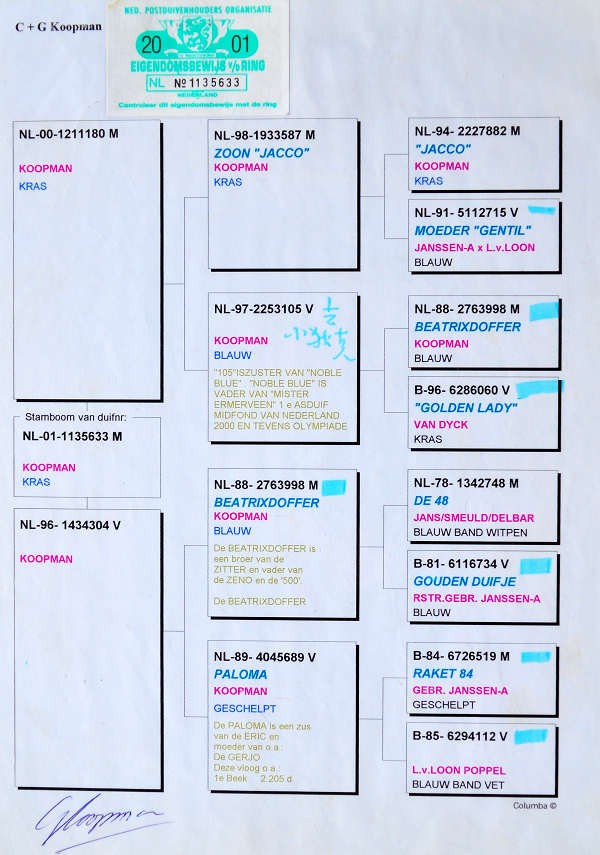 C + G Koopman
NED. POSTDUIVENHOUDERS ORGANISATIE
20 01
EIGENDOMSBEWIJS v/d RING
NL Nº 1135633
NEDERLAND
Controleer dit eigendomsbewijs met de ring
NL-00-1211180 M
KOOPMAN
KRAS
Stamboom van duifnr:
NL-01-1135633 M
KOOPMAN
KRAS
NL-96- 1434304 V
KOOPMAN
NL-98-1933587 M
ZOON "JACCO"
KOOPMAN
KRAS
NL-97-2253105 V
KOOPMAN
小狄克
BLAUW
"105"ISZUSTER VAN "NOBLE
BLUE". "NOBLE BLUE" IS
VADER VAN "MISTER
ERMERVEEN" 1 e ASDUIF
MIDFOND VAN NEDERLAND
2000 EN TEVENS OLYMPIADE
NL-88- 2763998 M
BEATRIXDOFFER
KOOPMAN
BLAUW
De BEATRIXDOFFER is
een broer van de
ZITTER en vader van
de ZENO en de '500'.
De BEATRIXDOFFER
NL-89- 4045689 V
PALOMA
KOOPMAN
GESCHELPT
De PALOMA is een zus
van de ERIC en
moeder van o.a.:
De GERJO
Deze vloog o.a.:
1e Beek 2.205 d.
NL-94- 2227882 M
"JACCO"
KOOPMAN
KRAS
NL-91- 5112715 V
MOEDER "GENTIL"
JANSSEN-A x L.v.LOON
BLAUW
NL-88- 2763998 M
BEATRIXDOFFER
KOOPMAN
BLAUW
B-96- 6286060 V
"GOLDEN LADY"
VAN DYCK
KRAS
NL-78- 1342748 M
DE 48
JANS/SMEULD/DELBAR
BLAUW BAND WITPEN
B-81- 6116734 V
GOUDEN DUIFJE
RSTR.GEBR. JANSSEN-A
BLAUW
B-84- 6726519 M
RAKET 84
GEBR. JANSSEN-A
GESCHELPT
B-85- 6294112 V
L.v.LOON POPPEL
BLAUW BAND VET
Columba ©
GKoopman